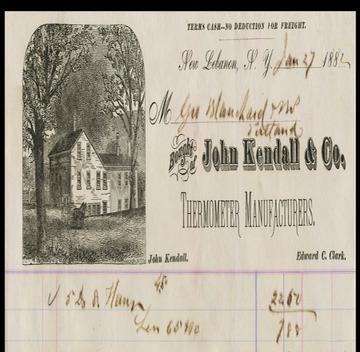 TERMS CASH—NO DEDUCTION FOR FREIGHT.
New Lebanon, N. Y. Jan 27 188
M Geo Blanchard
Bought of John Kendall & Co.
THERMOMETER MANUFACTURERS.
John Kendall. Edward C. Clark.
5 Dz 22 50
Less